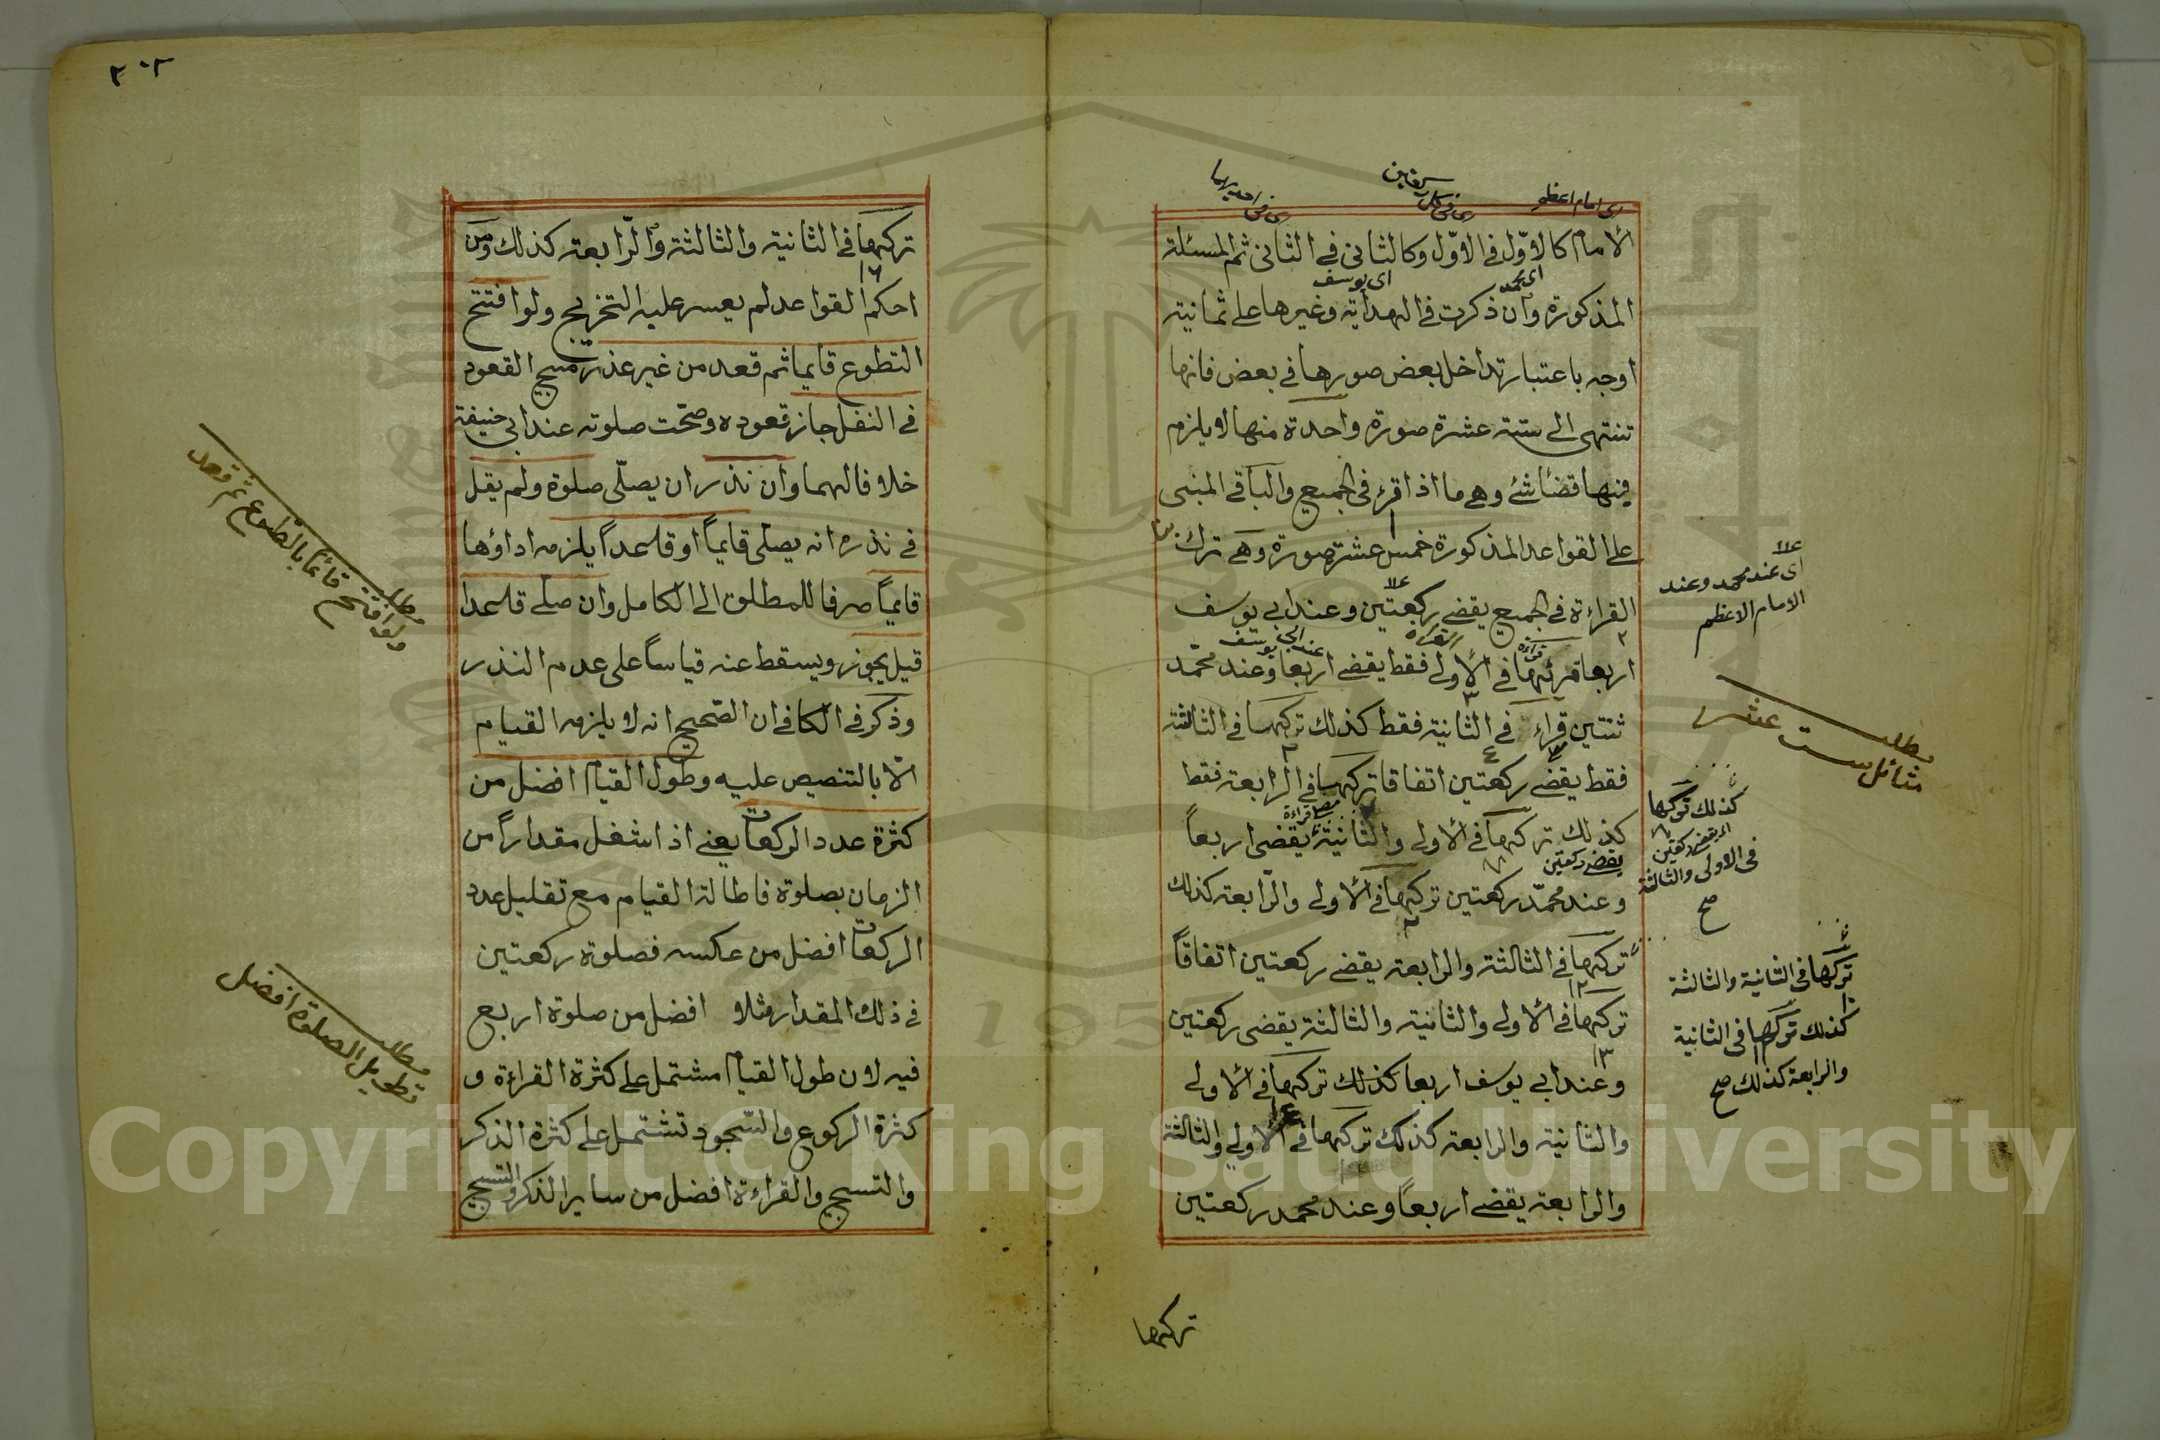 اى امام اعظم
اى فى كل ركعتين
اى فى احديهما
الامام كالاوّل فى الاوّل وكالثانى فى الثانى ثم المسئلة
اى محمد
اى يوسف
المذكورة وان ذكرت فى الهداية وغيرها على ثمانية
اوجه باعتبار تداخل بعض صورها فى بعض فانها
تنتهى الى ستة عشرة صورة واحدة منها لا يلزم
فيها قضاء شئ وهى ما اذا قرء فى الجميع والباقى المبنى
على القواعد المذكورة خمس عشرة صورة وهى ترك
القراءة فى الجميع يقضى ركعتين وعند ابى يوسف
اربعا قرئها فى الاولى فقط يقضى اربعا وعند محمّد
ثنتين قراء فى الثانية فقط كذلك تركها فى الثالثة
فقط يقضى ركعتين اتفاقا تركها فى الرابعة فقط
كذلك تركها فى الاولى والثانية يقضى اربعاً
يقضى ركعتين
وعند محمّد ركعتين تركها فى الاولى والرّابعة كذلك
تركها فى الثالثة والرابعة يقضى ركعتين اتفاقاً
تركها فى الاولى والثانية والثالثة يقضى ركعتين
وعند ابى يوسف اربعا كذلك تركها فى الاولى
والثانية والرابعة كذلك تركها فى الاولى والثالثة
والرابعة يقضى اربعاً وعند محمد ركعتين
تركها
اى عند محمد وعند
الامام الاعظم
مطلب
مسائل ست عشر
كذلك تركها
يقضى ركعتين
فى الاولى والثالثة
صح
تركها فى الثانية والثالثة
كذلك تركها فى الثانية
والرابعة كذلك صح
٣٠٢
تركها فى الثانية والثالثة والرّابعة كذلك ومن
احكم القواعد لم يعسر عليه التخريج ولو افتتح
التطوع قايما ثم قعد من غير عذر مبيح القعود
فى النفل جاز قعوده وصحّت صلوته عند ابى حنيفة
خلافا لهما وان نذر ان يصلّى صلوة ولم يقل
فى نذره انه يصلى قايماً او قاعداً يلزمه اداؤها
قايماً صرفا للمطلق الى الكامل وان صلى قاعدا
قيل يجوز ويسقط عنه قياساً على عدم النذر
وذكر فى الكافى ان الصّحيح انه لا يلزمه القيام
الّا بالتنصيص عليه وطول القيام افضل من
كثرة عدد الركعات يعنى اذا شغل مقداراً من
الزمان بصلوة فاطالة القيام مع تقليل عدد
الركعات افضل من عكسه فصلوة ركعتين
فى ذلك المقدار مثلا افضل من صلوة اربع
فيه لان طول القيام مشتمل على كثرة القراءة و
كثرة الركوع والسّجود تشتمل على كثرة الذكر
والتسبيح والقراءة افضل من ساير الذكر والتسبيح
مطلب
ولو افتتح قائما بالتطوع ثم قعد
مطلب
تطويل الصلوة افضل
Copyright © King Saud University
195